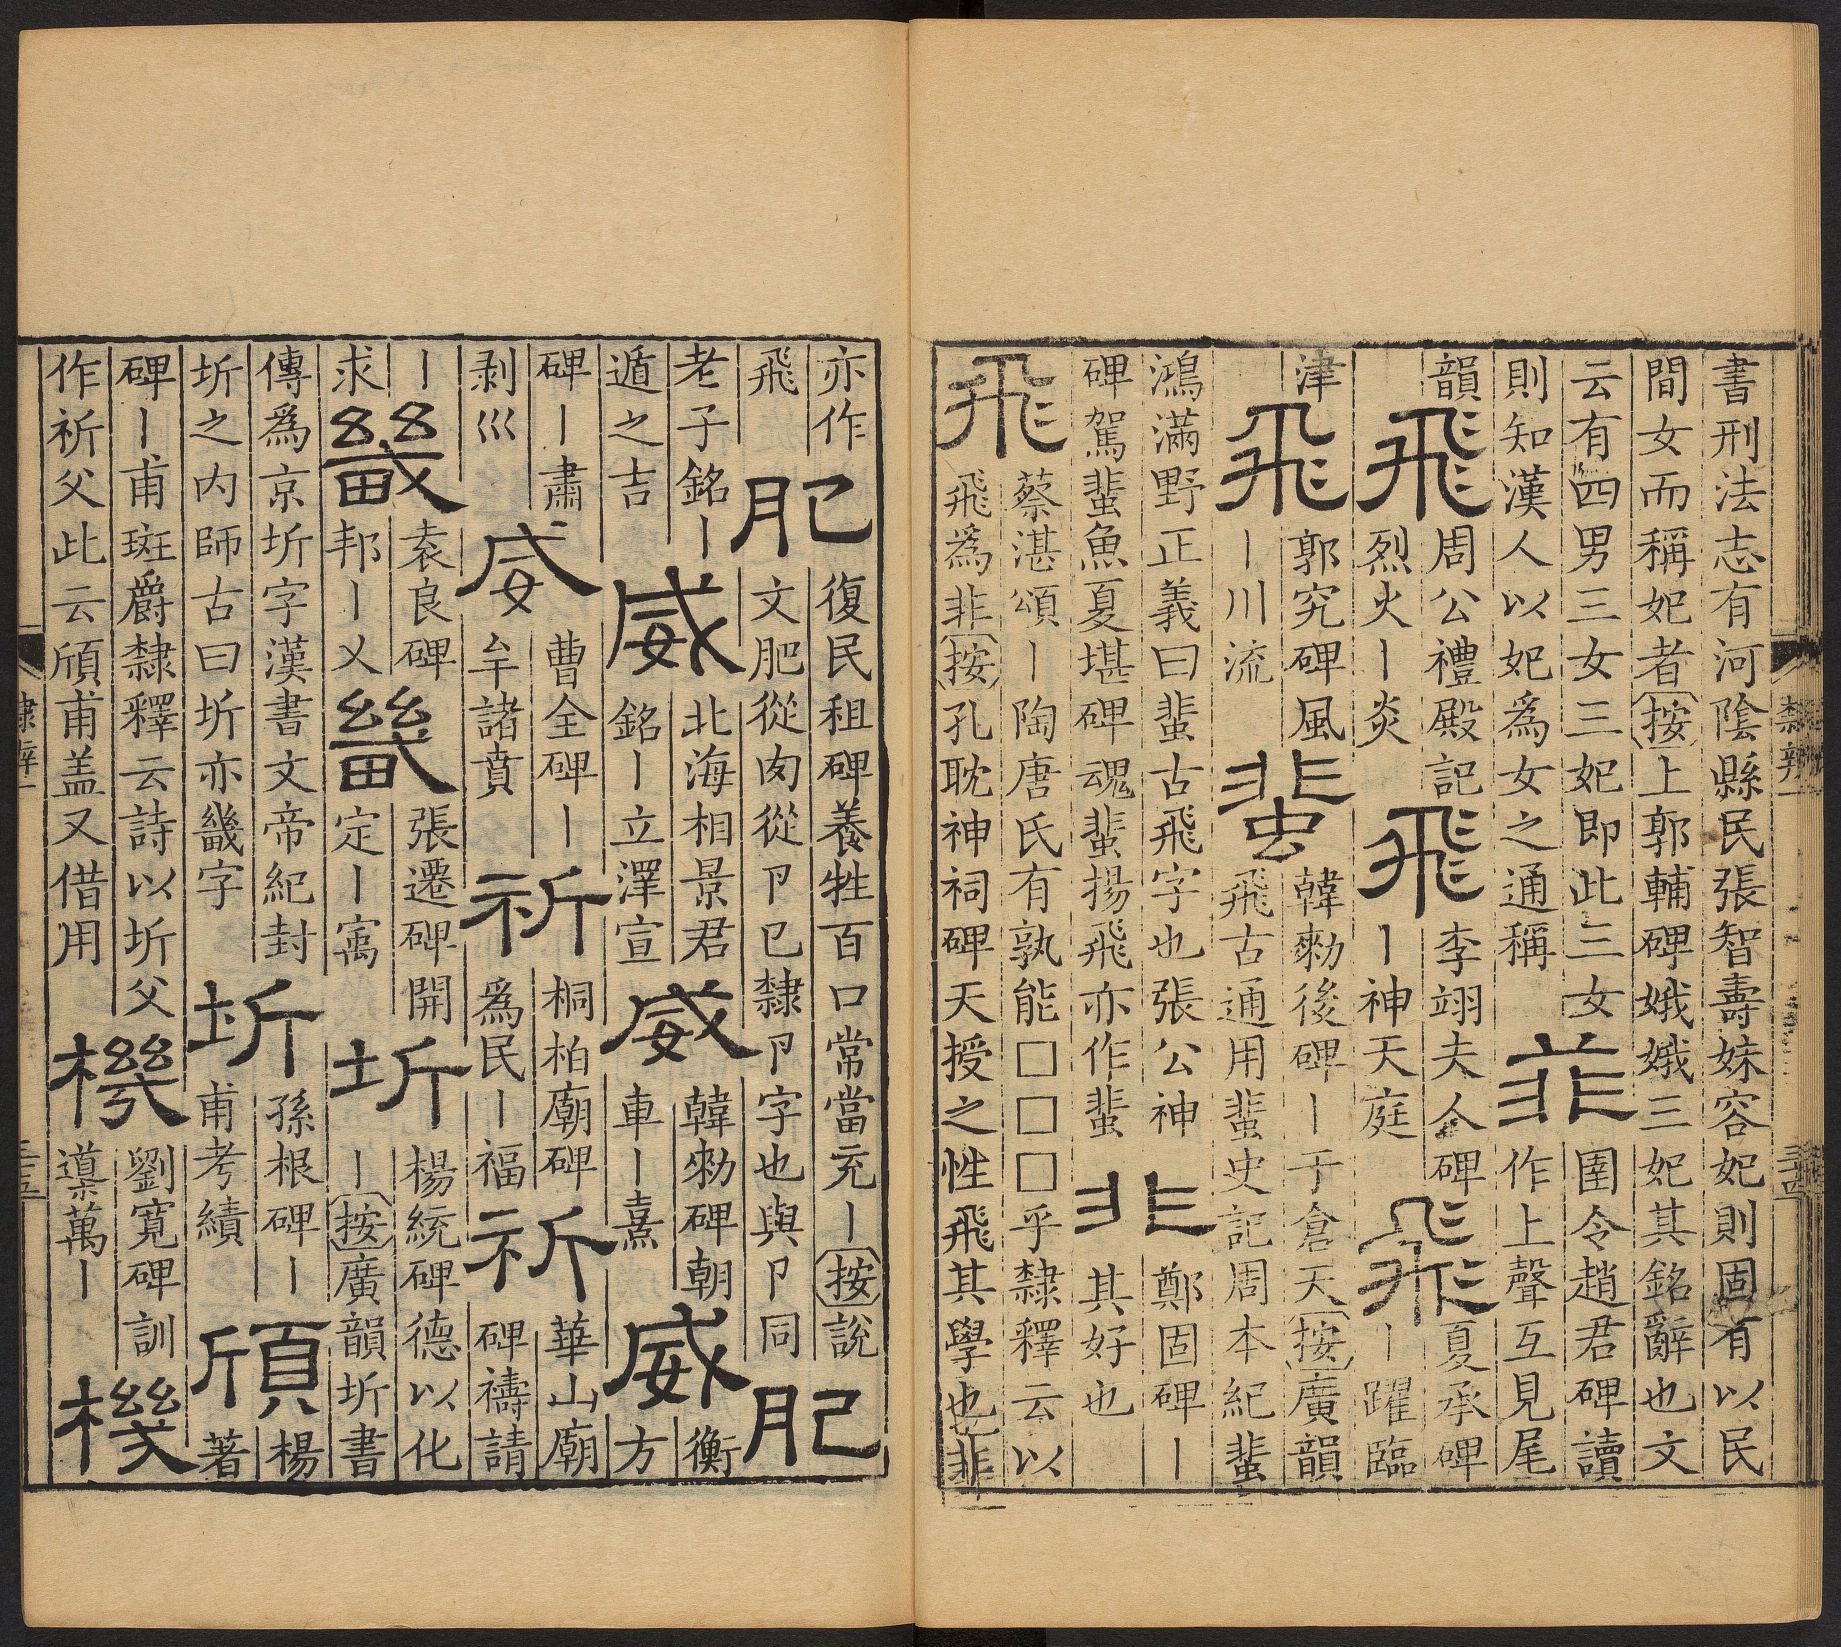 書刑法志有河陰縣民張智壽妹容妃則固有以民
間女而稱妃者按上郭輔碑娥娥三妃其銘辭也文
云有四男三女三妃即此三女菲圉令趙君碑讀
則知漢人以妃爲女之通稱作上聲互見尾
韻飛周公禮殿記飛李翊夫人碑飛夏承碑
烈火丨炎丨神天庭丨躍臨
津飛郭究碑風蜚韓勑後碑丨于倉天按廣韻
丨川流飛古通用蜚史記周本紀蜚
鴻滿野正義曰蜚古飛字也張公神非鄭固碑丨
碑駕蜚魚夏堪碑魂蜚揚飛亦作蜚其好也
飛蔡湛頌丨陶唐氏有孰能□□□乎隸釋云以
飛爲非按孔耽神祠碑天授之性飛其學也非
隸辨一
亦作肥復民租碑養牲百口常當充丨按說肥
飛文肥從肉從卪巳隸卪字也與卪同
老子銘丨威北海相景君威韓勑碑朝威衡
遁之吉銘丨立澤宣車丨熹方
碑丨肅威曹全碑丨祈桐柏廟碑祈華山廟
剥巛牟諸賁爲民丨福碑禱請
丨畿袁良碑畿張遷碑開圻楊統碑德以化
求邦丨乂定丨寓丨按廣韻圻書
傳爲京圻字漢書文帝紀封圻孫根碑丨頎楊
圻之内師古曰圻亦畿字甫考績著
碑丨甫班爵隸釋云詩以圻父機劉寬碑訓機
作祈父此云頎甫盖又借用䆃萬丨